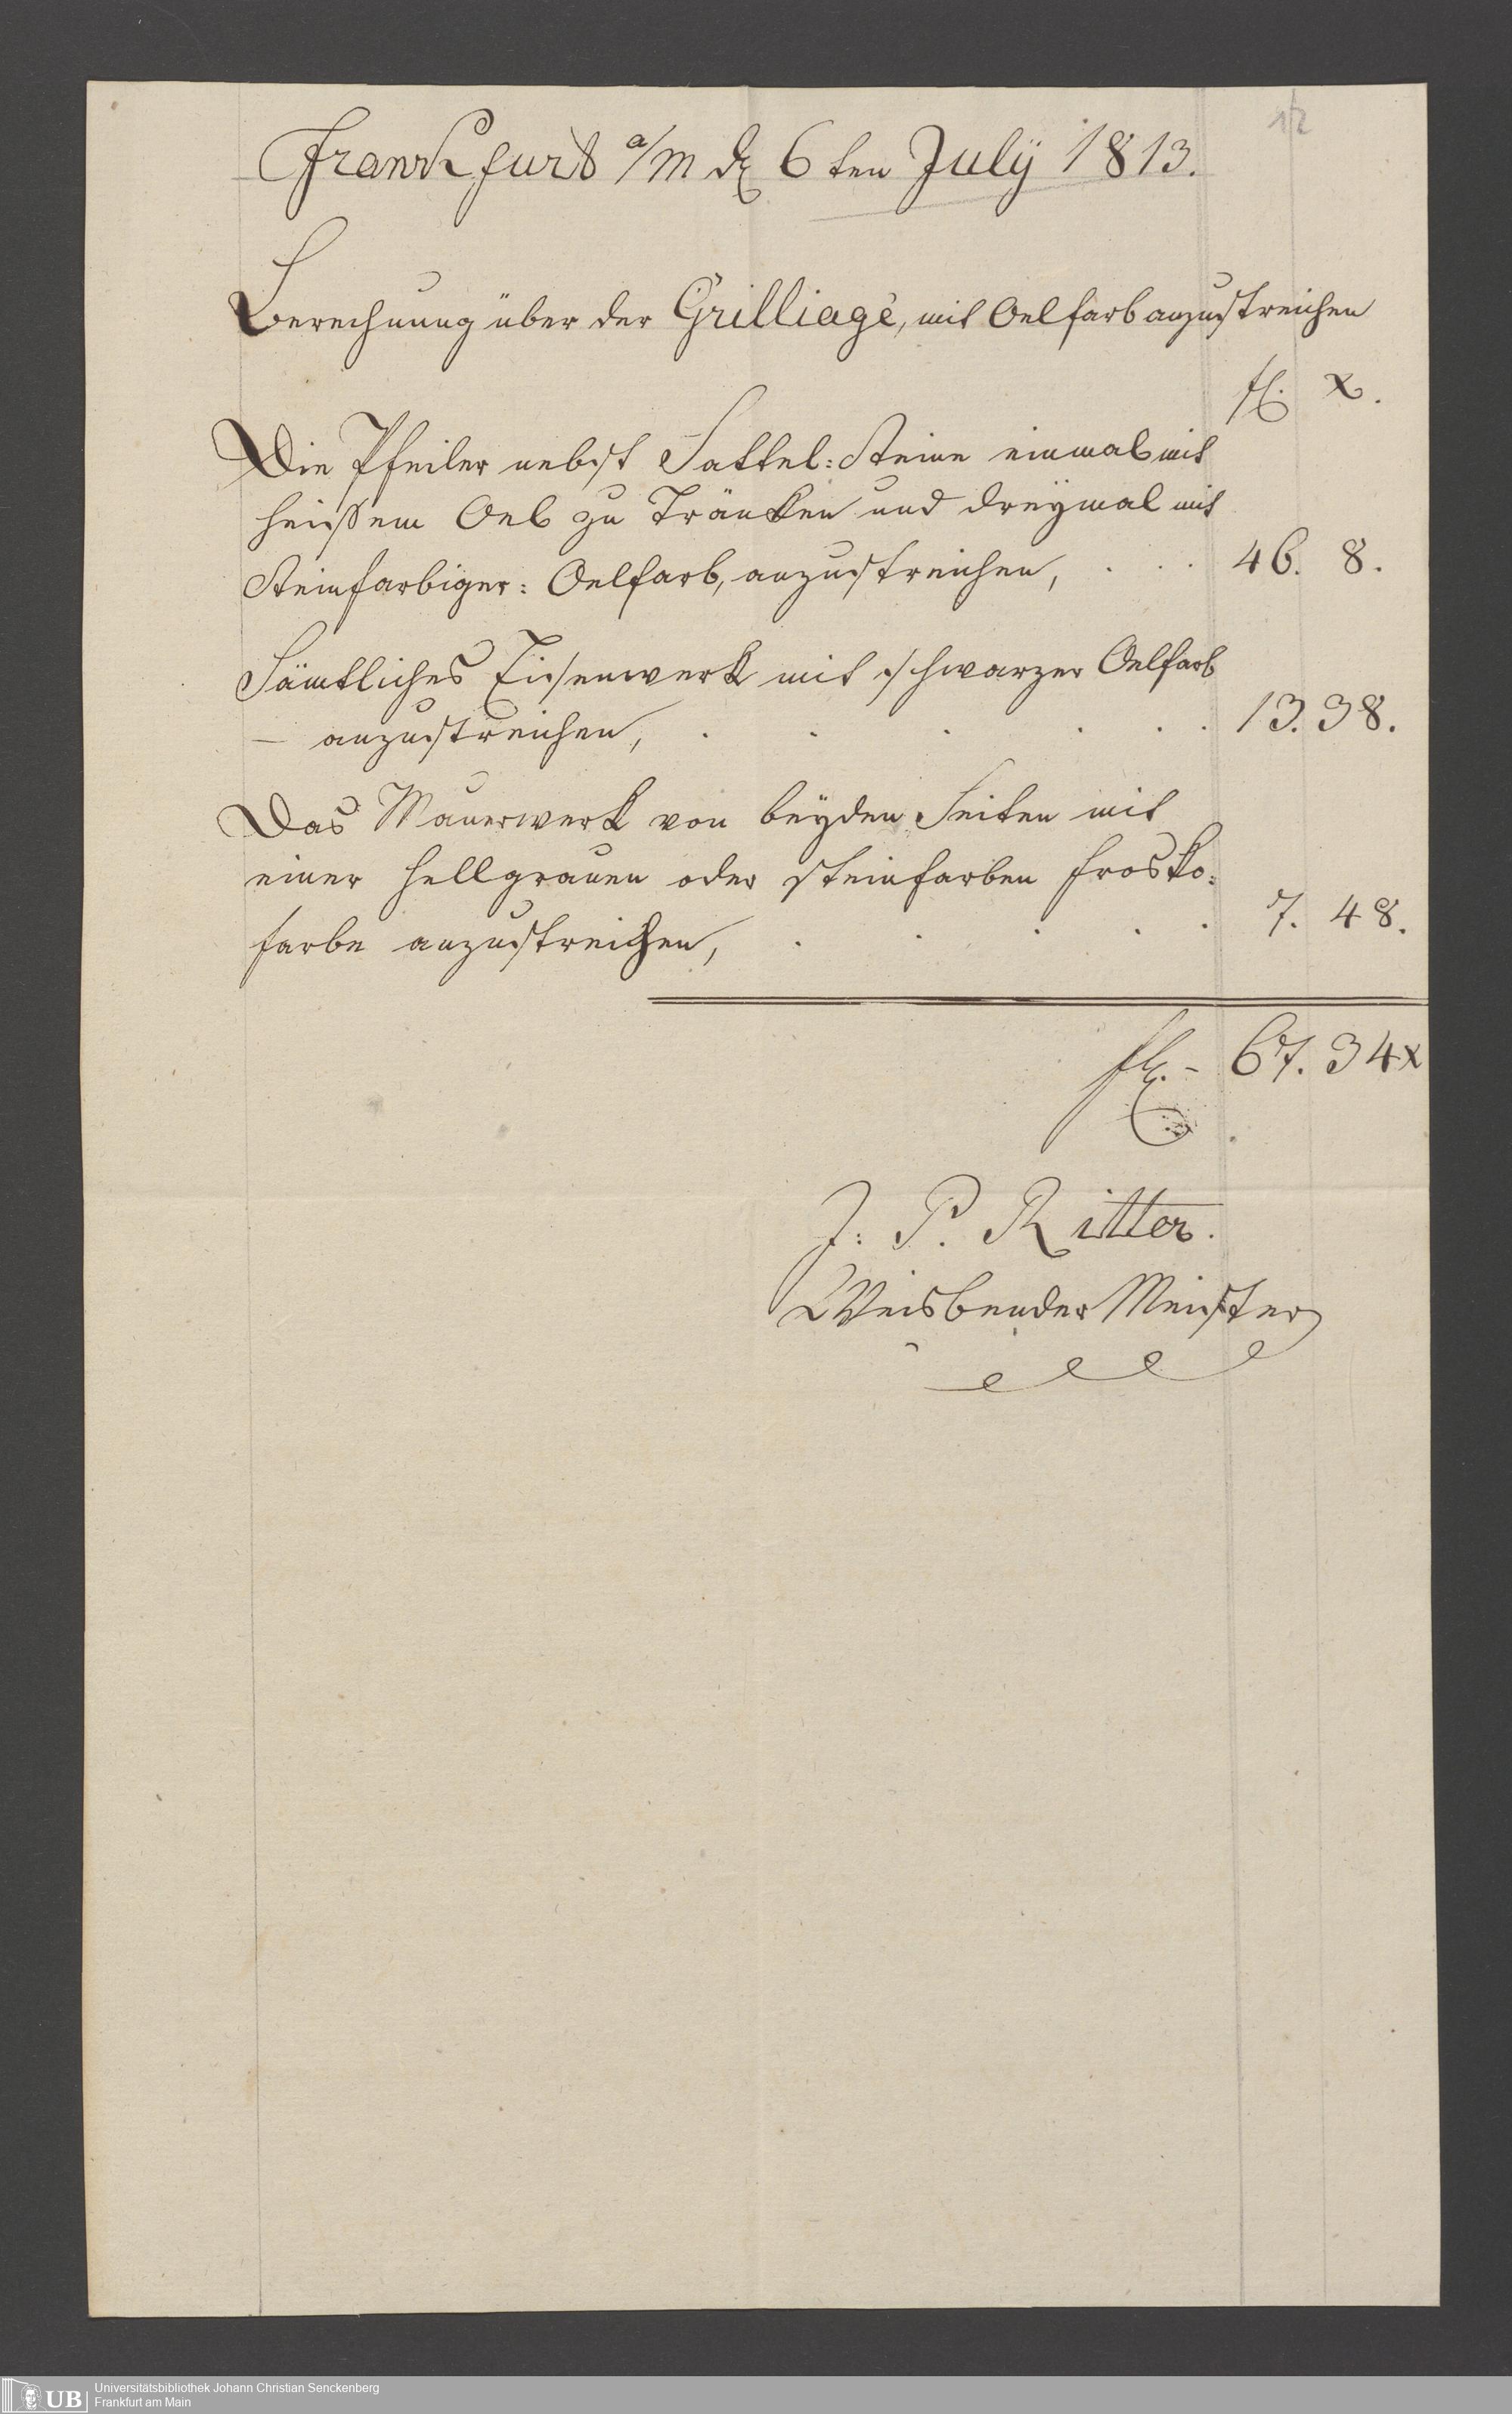 12
Franckfurt a/M d 6ten July 1813.
Berechnung über der Grilliage, mit Oelfarb anzustreichen
fl. x.
Die Pfeiler nebst Sattel: Steine einmal mit
heissem Oel zu Tränken und dreymal mit
Steinfarbiger: Oelfarb, anzustreichen, . . . 46. 8.
Sämtliches Eisenwerk mit schwarzer Oelfarb
– anzustreichen, . . . . . . 13. 38.
Das Mauerwerk von beyden Seiten mit
einer hellgrauen oder steinfarben frosko:
farbe anzustreichen, . . . . . 7. 48.
fl. - 67. 34x
J: P. Ritter.
Weisbender Meister
UB Universitätsbibliothek Johann Christian Senckenberg
Frankfurt am Main